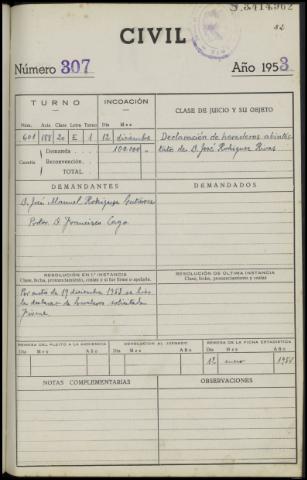 S.3414962
52
CIVIL
Número 307
Año 1953
TURNO
INCOACIÓN
CLASE DE JUICIO Y SU OBJETO
Núm. Acta Clase Letra Turno Día Mes Año
601 188 20 E 1 12 diciembre
Declaración de herederos abintes
Cuantía
Demanda 100.000
Reconvención
TOTAL
tato de D. José Rodríguez Rivas
DEMANDANTES
DEMANDADOS
D. José Manuel Rodríguez Gutiérrez
Procdor. D. Francisco
RESOLUCIÓN EN 1.ª INSTANCIA
Clase, fecha, pronunciamiento, costas y si fue firme o apelada.
RESOLUCIÓN DE ÚLTIMA INSTANCIA
Clase, fecha, pronunciamiento y costas
Por auto de 19 diciembre 1953 se hizo
la declarac. de herederos solicitada
Firme
REMESA DEL PLEITO A LA AUDIENCIA
DEVOLUCIÓN AL JUZGADO
REMESA DE LA FICHA ESTADÍSTICA
Día Mes Año
Día Mes Año
Día Mes Año
12 enero 1954
NOTAS COMPLEMENTARIAS
OBSERVACIONES